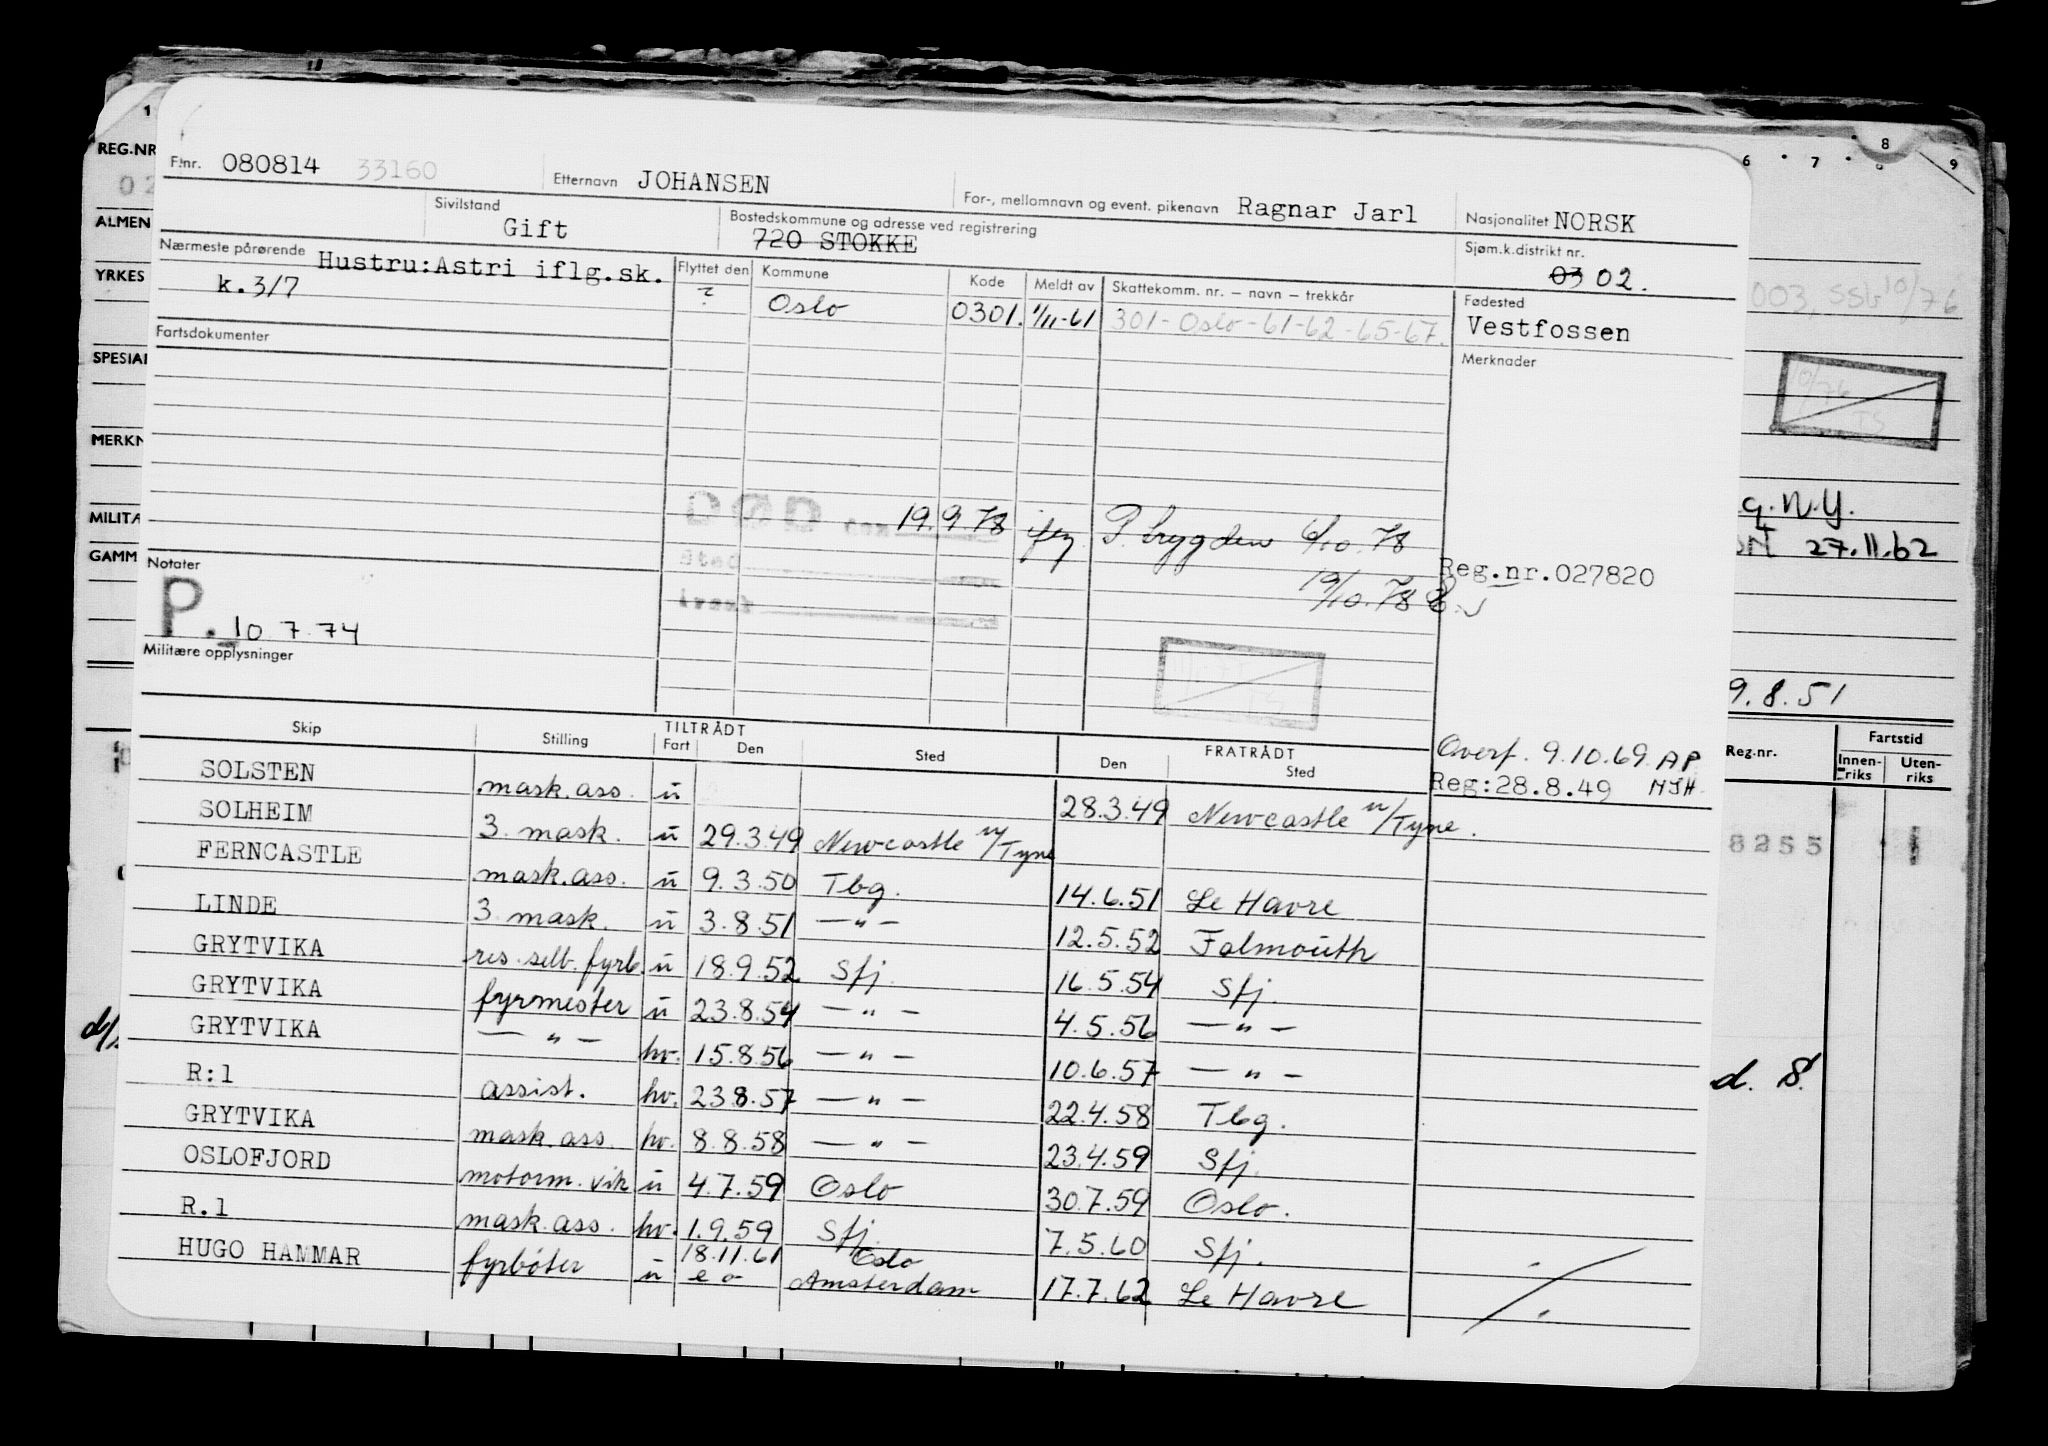 F.nr. 080814 33160 Etternavn JOHANSEN For-, mellomnavn og event. pikenavn Ragnar Jarl Nasjonalitet NORSK
Sivilstand Gift Bostedskommune og adresse ved registrering 720 STOKKE Sjøm.k.distrikt nr. 03 02.
Nærmeste pårørende Hustru:Astri iflg.sk. k.3/7
Flyttet den Kommune Kode Meldt av Skattekomm. nr. – navn – trekkår
? Oslo 0301. 1/11-61 301-Oslo-61-62-65-67.
Fødested
Vestfossen
Fartsdokumenter
Merknader
DØD 19.9.78 iflg. P. trygden 6/10.78
Sted
19/10.78
Reg.nr.027820
Notater
P. 10 7 74
Militære opplysninger
Overf. 9.10.69 AP
Reg:28.8.49 NJH
Skip Stilling TILTRÅDT Fart Den Sted FRATRÅDT Den Sted
SOLSTEN mask.ass. u 28.3.49 Newcastle u/Tyne.
SOLHEIM 3. mask. u 29.3.49 Newcastle u/Tyne
FERNCASTLE mask.ass. u 9.3.50 Tbg. 14.6.51 Le Havre
LINDE 3. mask. u 3.8.51 —"— 12.5.52 Falmouth
GRYTVIKA res.selb.fyrb. u 18.9.52 Sfj. 16.5.54 Sfj.
GRYTVIKA fyrmester u 23.8.54 —"— 4.5.56 —"—
GRYTVIKA —"— hv. 15.8.56 —"— 10.6.57 —"—
R:1 assist. hv. 23.8.57 —"— 22.4.58 Tbg.
GRYTVIKA mask.ass. hv. 8.8.58 —"— 23.4.59 Sfj.
OSLOFJORD motorm.vik u 4.7.59 Oslo 30.7.59 Oslo.
R.1 mask.ass. hv. 1.9.59 Sfj. 7.5.60 Sfj.
HUGO HAMMAR fyrbøter u 18.11.61 Oslo Amsterdam 17.7.62 Le Havre
REG.NR
02
ALMEN
YRKES
SPESIAL
MERKN
MILITÆ
GAMM
6 7 8 9
003, SSb 10/76
10/76
TS
q.N.Y.
27.11.62
9.8.51
Reg.nr. Fartstid
Innen-riks Uten-riks
8255
d. 8.